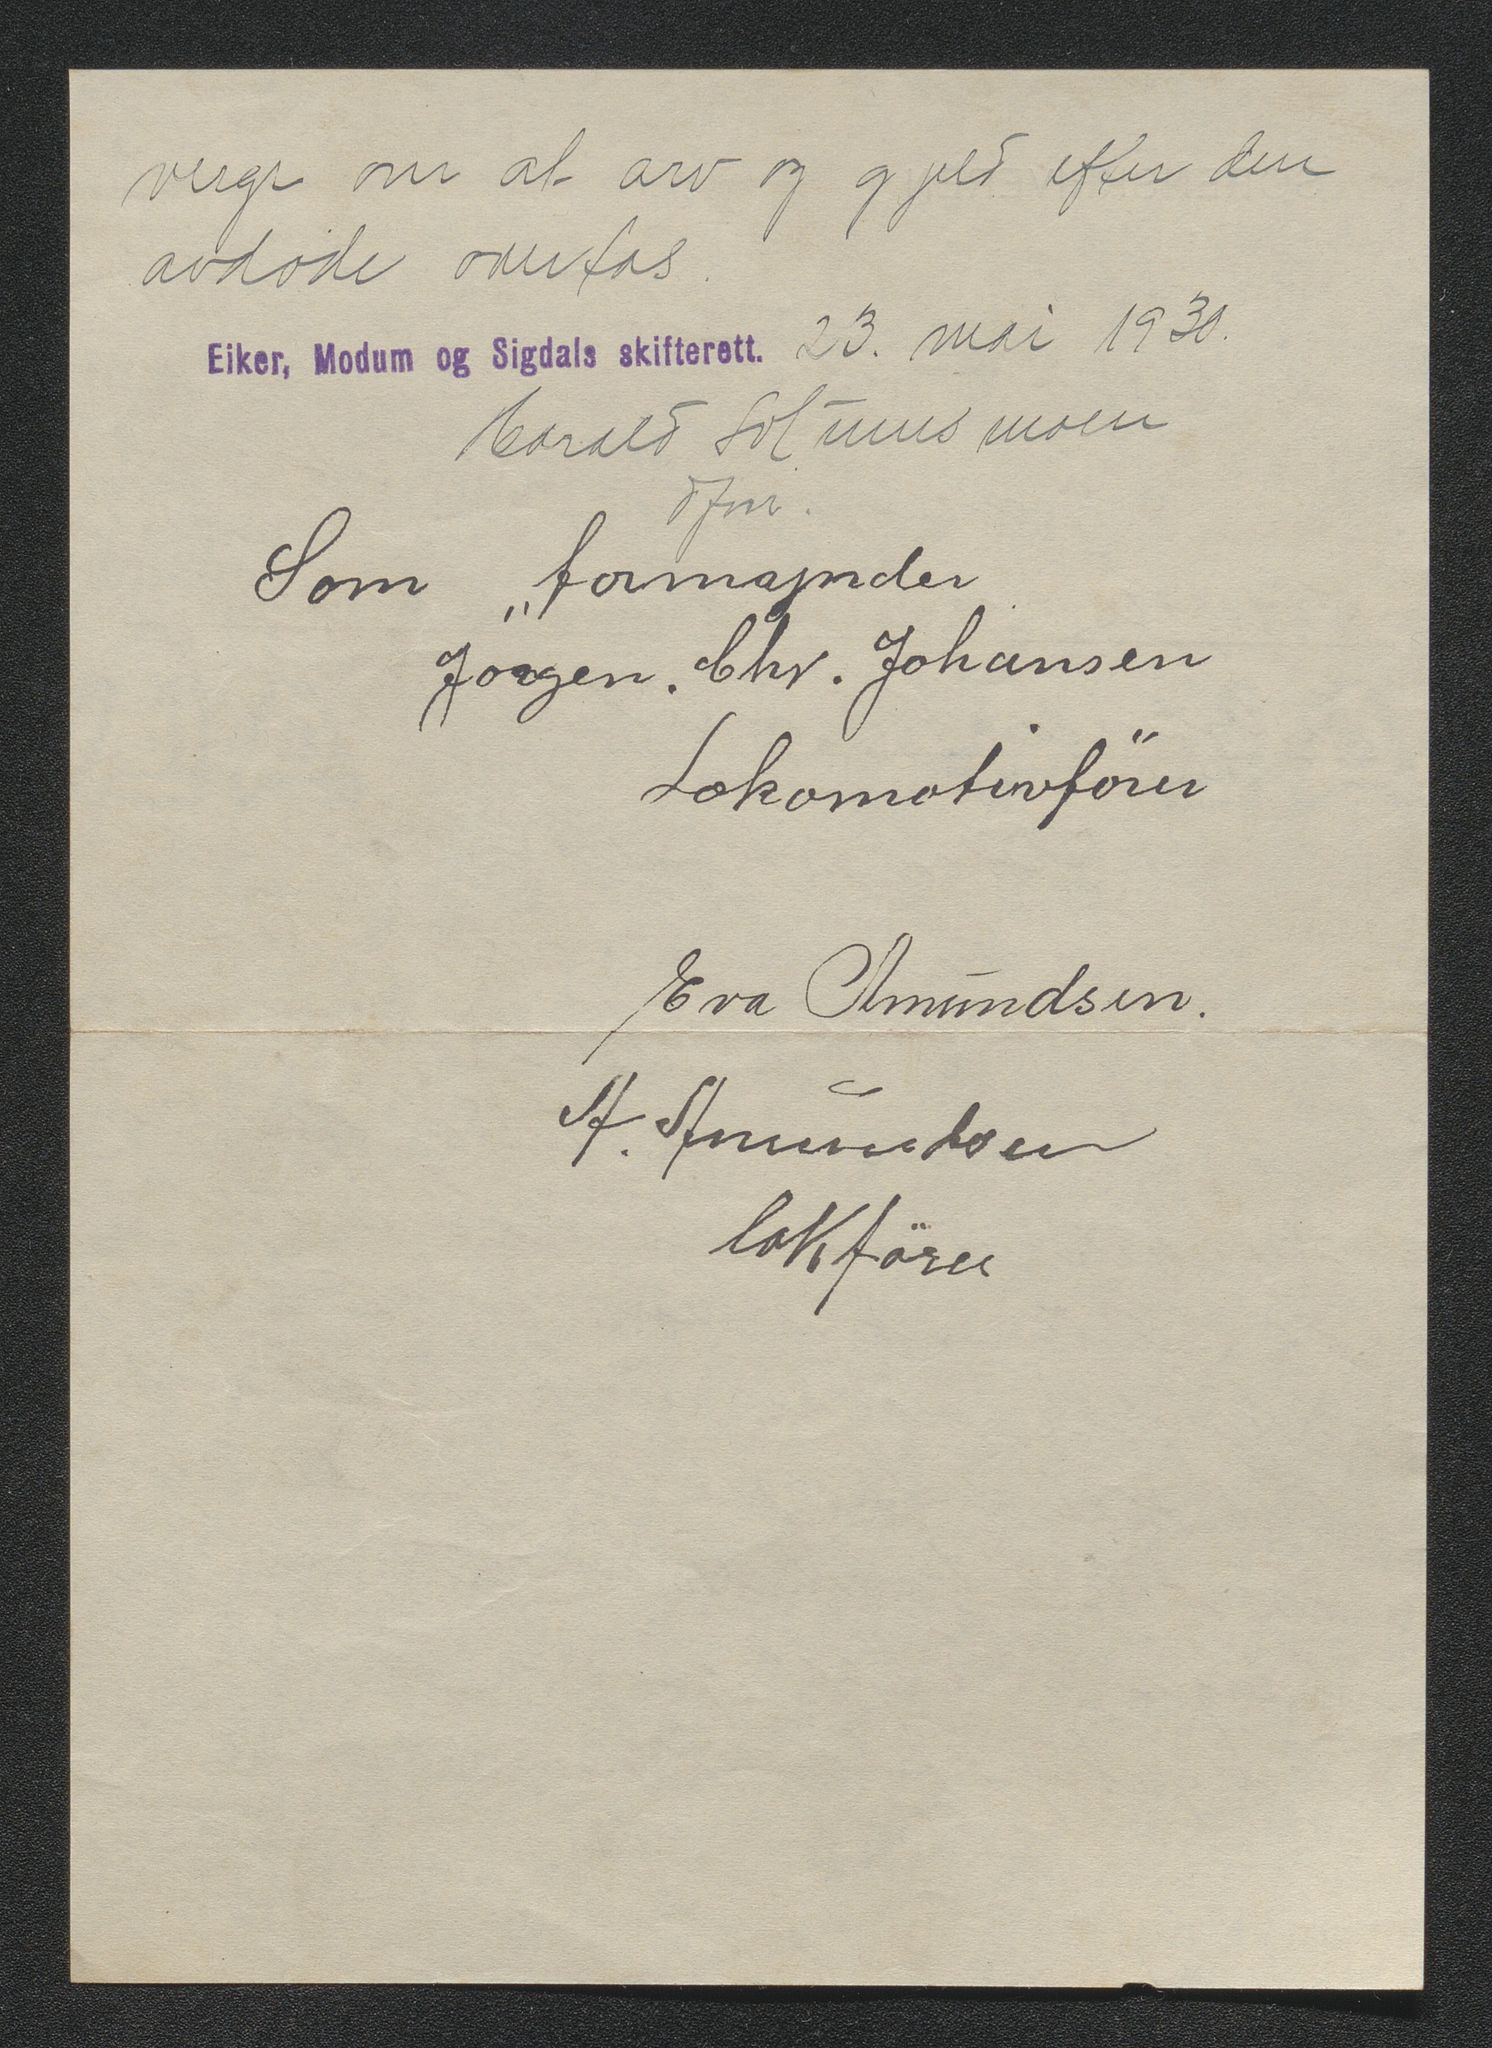 verge om at arv og gjeld efter den
avdøde overtas.
Eiker, Modum og Sigdals skifterett. 23. mai 1930.
Harald moen
dfm.
Som formaynder
Jörgen. Chr. Johansen
Lokomotivförer
Eva Amundsen.
A. Amundsen
lokförer